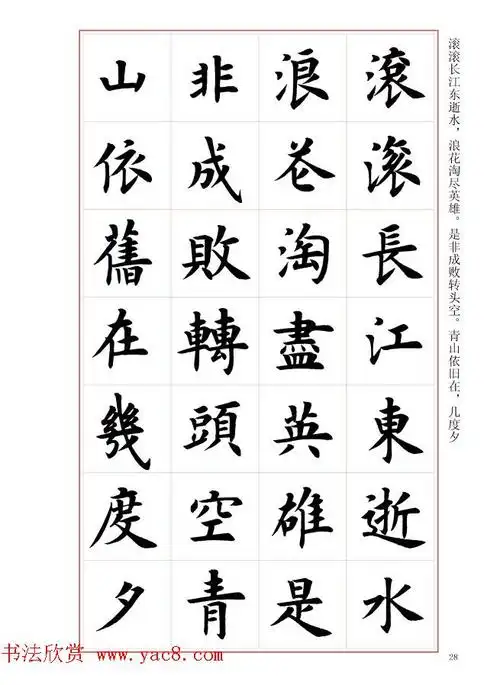 滚滚长江东逝水，浪花淘尽英雄。是非成败转头空。青山依旧在，几度夕
滾滾長江東逝水
浪花淘盡英雄是
非成敗轉頭空青
山依舊在幾度夕
书法欣赏 www.yac8.com
28